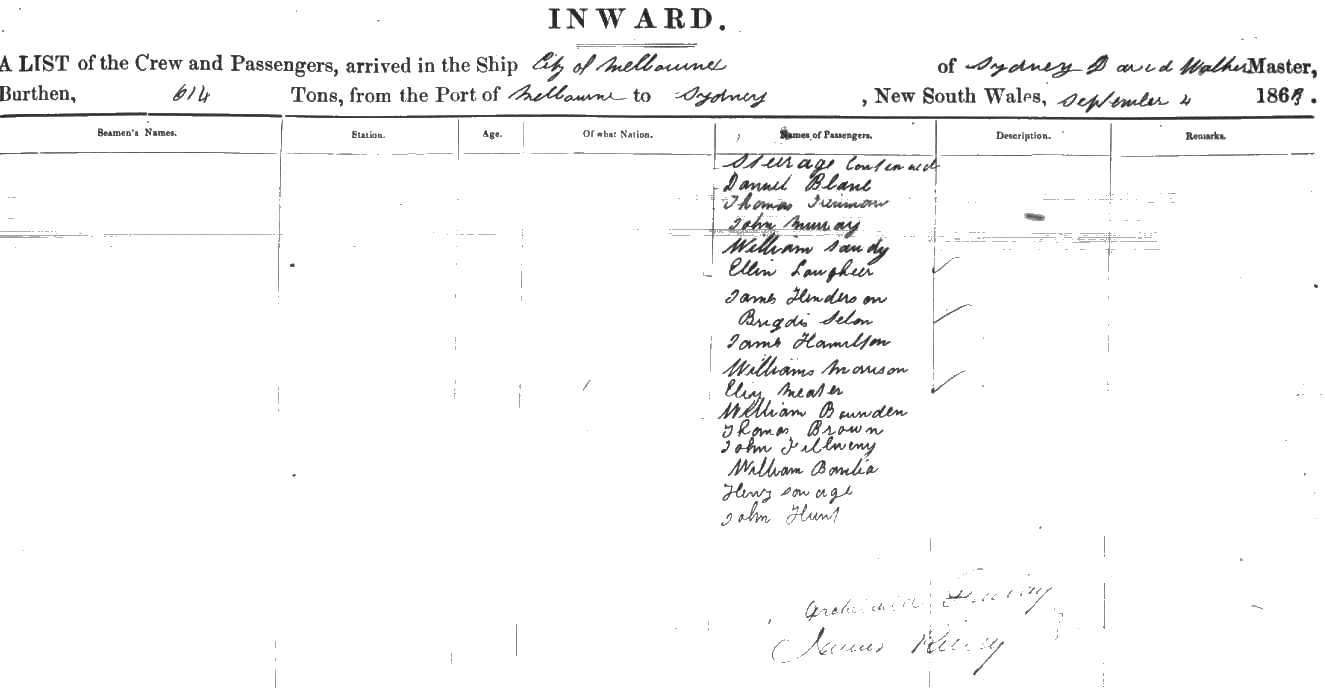 INWARD.
A LIST of the Crew and Passengers, arrived in the Ship City of Melbourne of Sydney David Walker Master,
Burthen, 614 Tons, from the Port of Melbourne to Sydney, New South Wales, September 4 186
Seamen's Names. Station. Age. Of what Nation. Names of Passengers. Description. Remarks.
Steerage Continued
Daniel Blane
Thomas
John Murray
William Sandy
Ellin
James Henderson
Brigdis Selon
James Hamilton
Williams Morrison
Eliz Meater
William Bounden
Thomas Brown
John
William
Henry Savage
John Hunt
Archibald
James